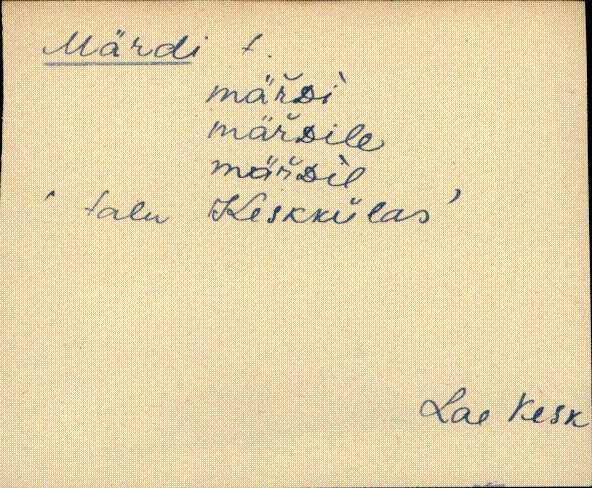 Märdi t.
mär̆ᴅì
mär̆ᴅile
mär̆ᴅìl
' talu Keskkülas'
Lae Kesk